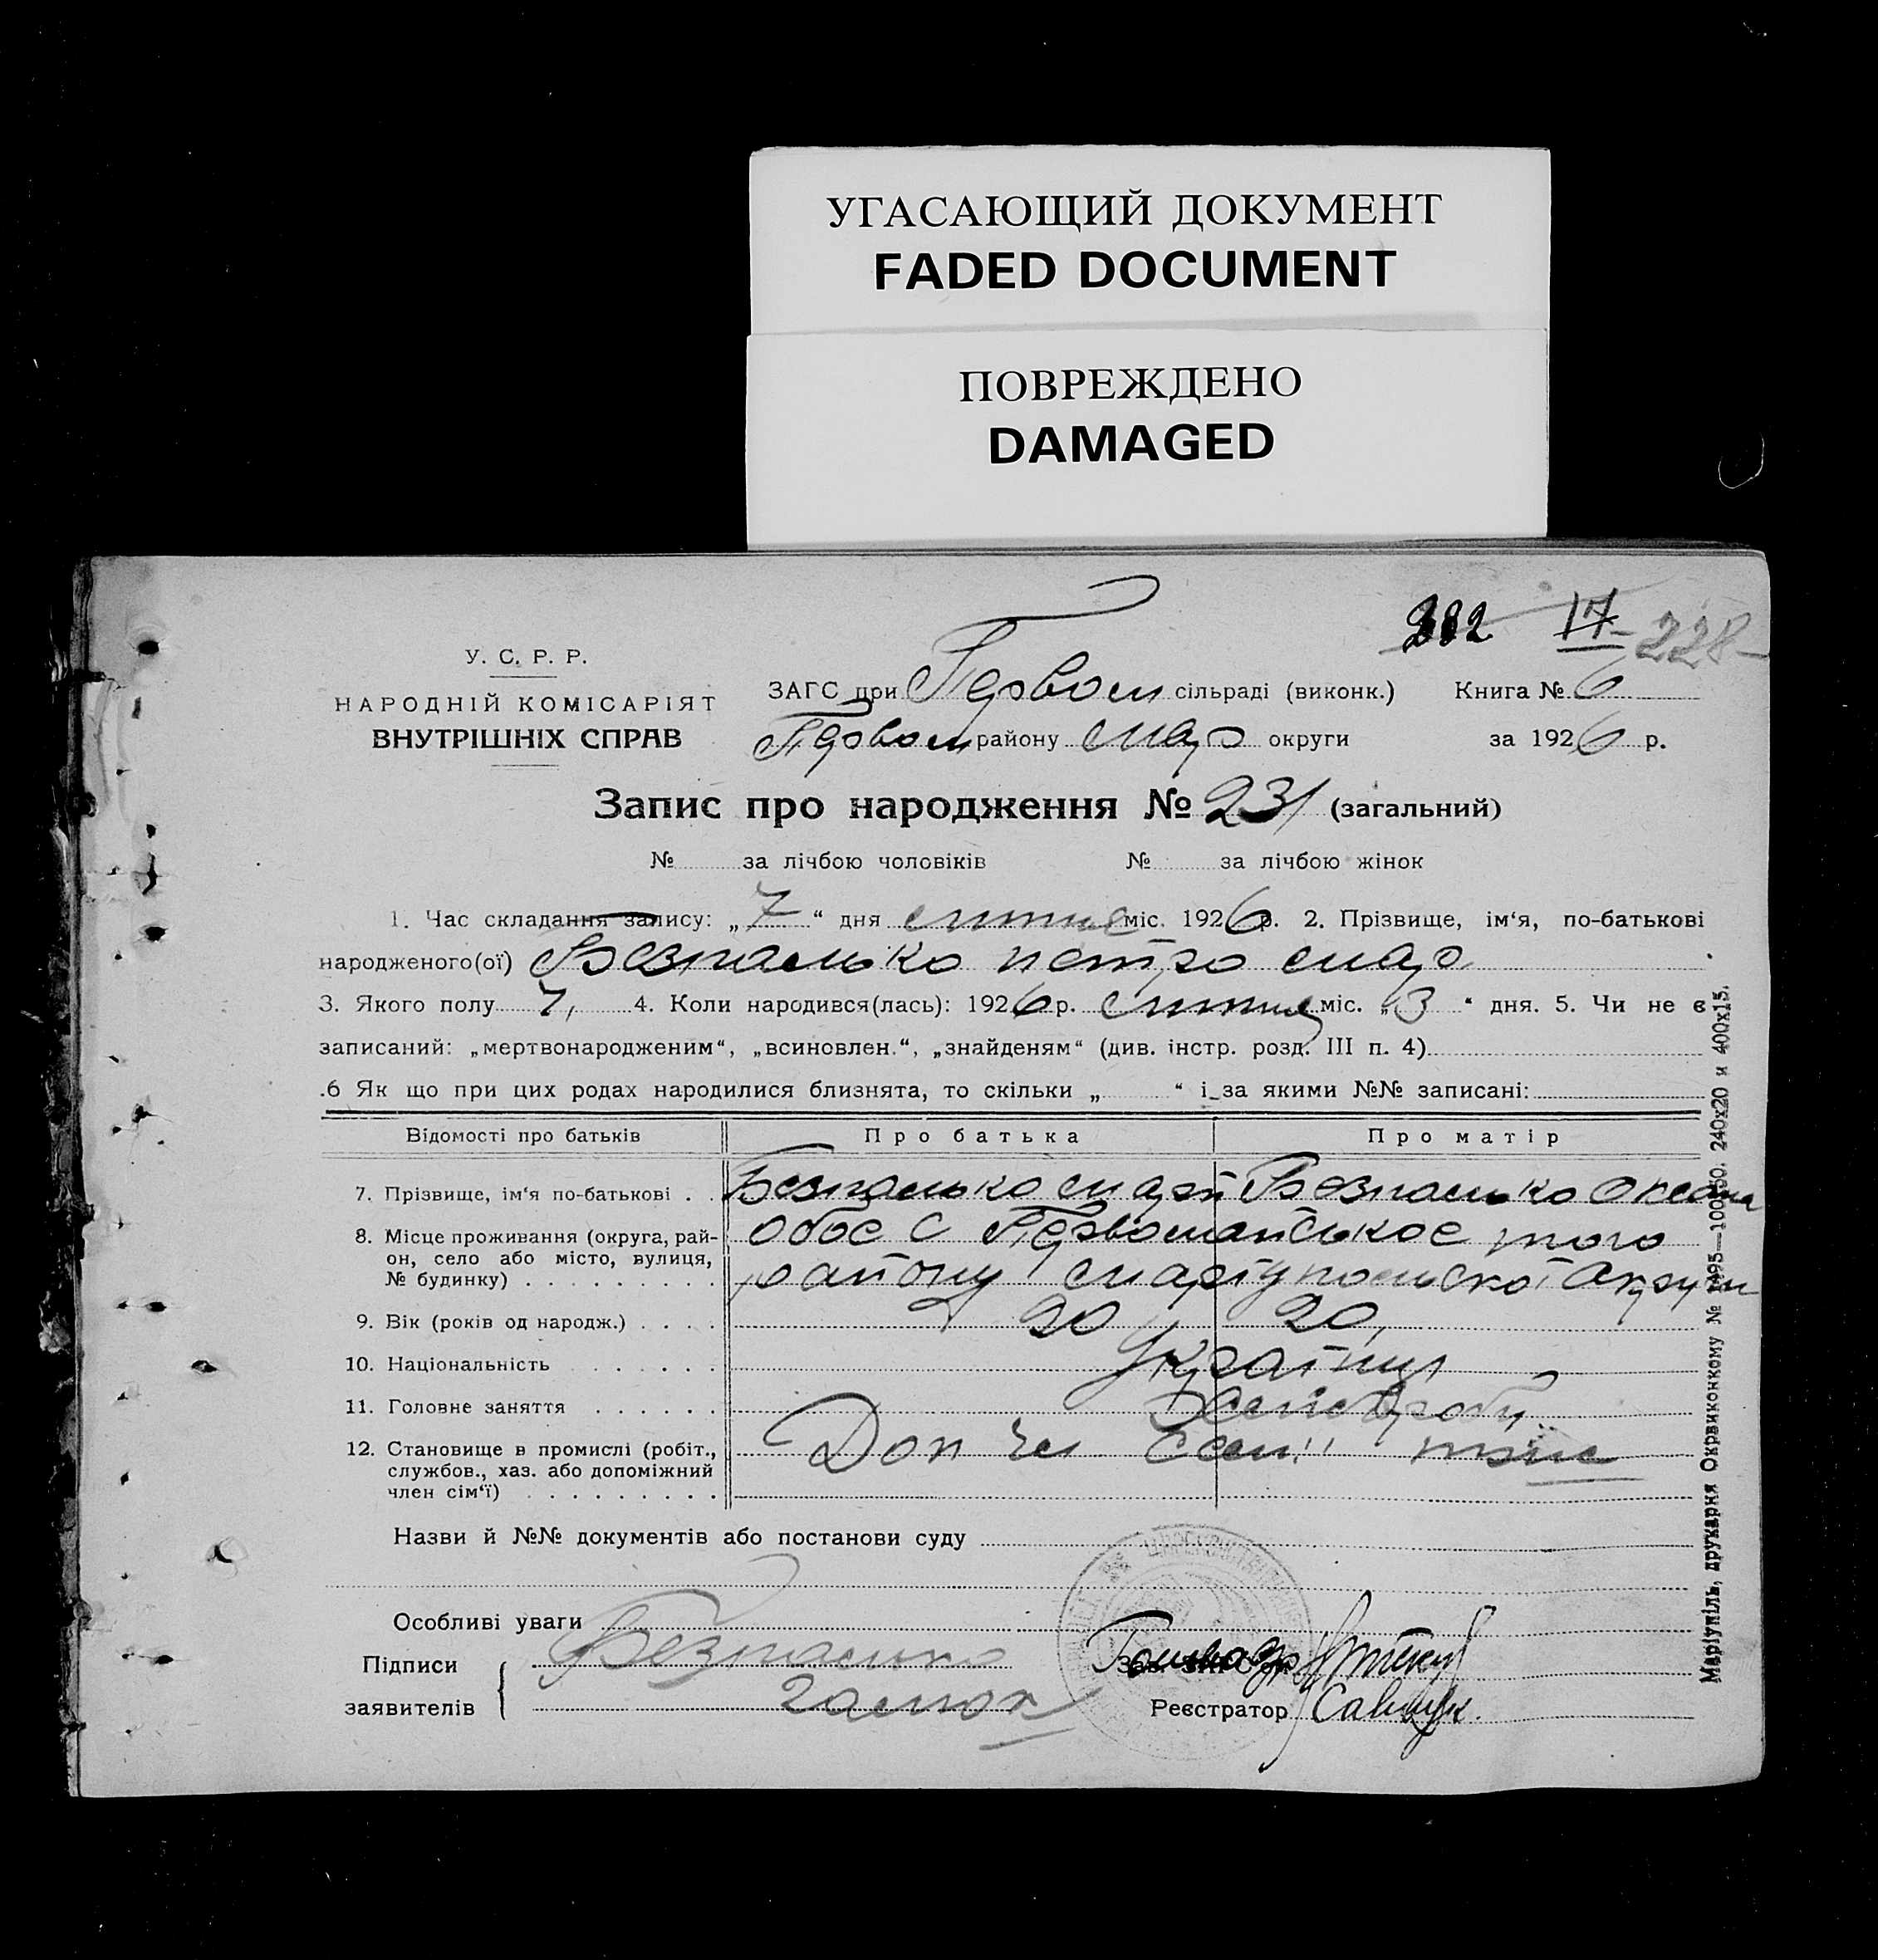 УГАСАЮЩИЙ ДОКУМЕНТ
FADED DOCUMENT
ПОВРЕЖДЕНО
DAMAGED
17 228
У. С. Р. Р.
НАРОДНІЙ КОМІСАРІЯТ
ВНУТРІШНІХ СПРАВ
ЗАГС при Первом сільраді (виконк.) Книга № 6
Первом району мар округи за 1926 р.
Запис про народження № 231 (загальний)
№ за лічбою чоловіків № за лічбою жінок
1. Час складання запису: „7“ дня міс. 1926 р. 2. Прізвище, ім‘я, по-батькові
народженого(ої) Безпалько петро мар
3. Якого полу 4. Коли народився(лась): 1926 р. міс. „3“ дня. 5. Чи не є
записаний: „мертвонародженим“, „всиновлен.“, „знайденям“ (див. інстр. розд. III п. 4)
.6 Як що при цих родах народилися близнята, то скільки „ “ і за якими №№ записані:
Відомості про батьків Про батька Про матір
7. Прізвище, ім‘я по-батькові . . Безпалько Безпалько
8. Місце проживання (округа, рай- обоє с Первомайське того
он, село або місто, вулиця, району маріупольскої округи
№ будинку)
9. Вік (років од народж.) 20 20,
10. Національність
11. Головне заняття
12. Становище в промислі (робіт., Доп чл сем
службов., хаз. або допоміжний
член сім‘ї)
Назви й №№ документів або постанови суду
Особливі уваги
Підписи Безпалько
заявителів Реєстратор Савчук
Маріупіль, друкарня Окрвиконкому № 1495—100×50. 240х20 и 400х15.